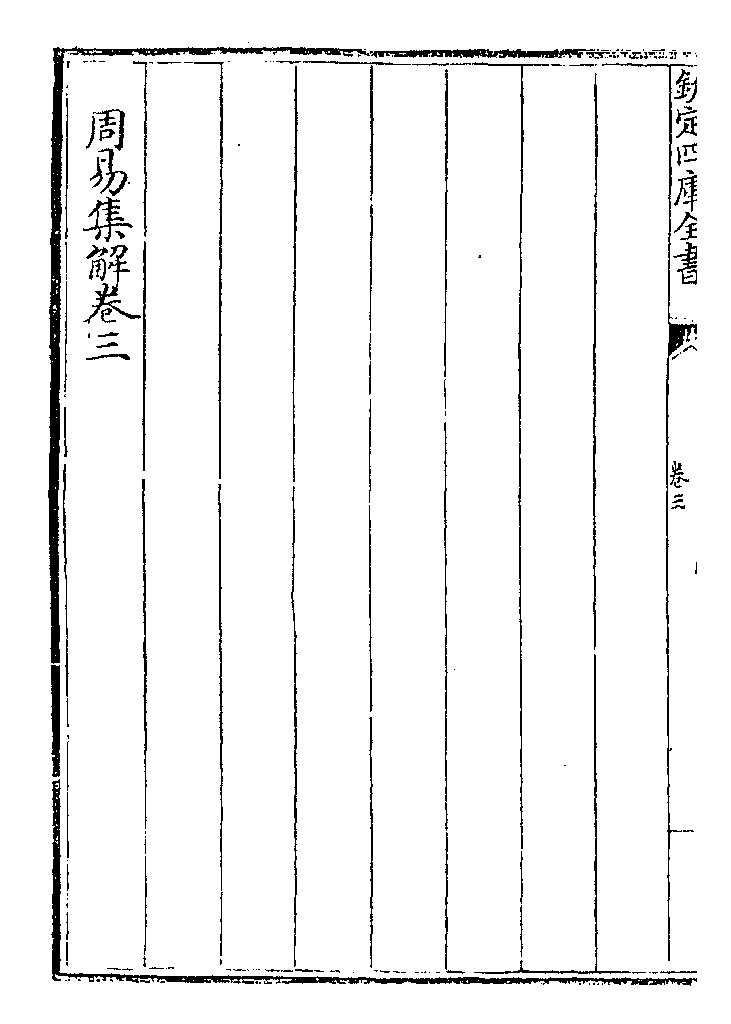 欽定四庫全書
卷三
周易集解卷三